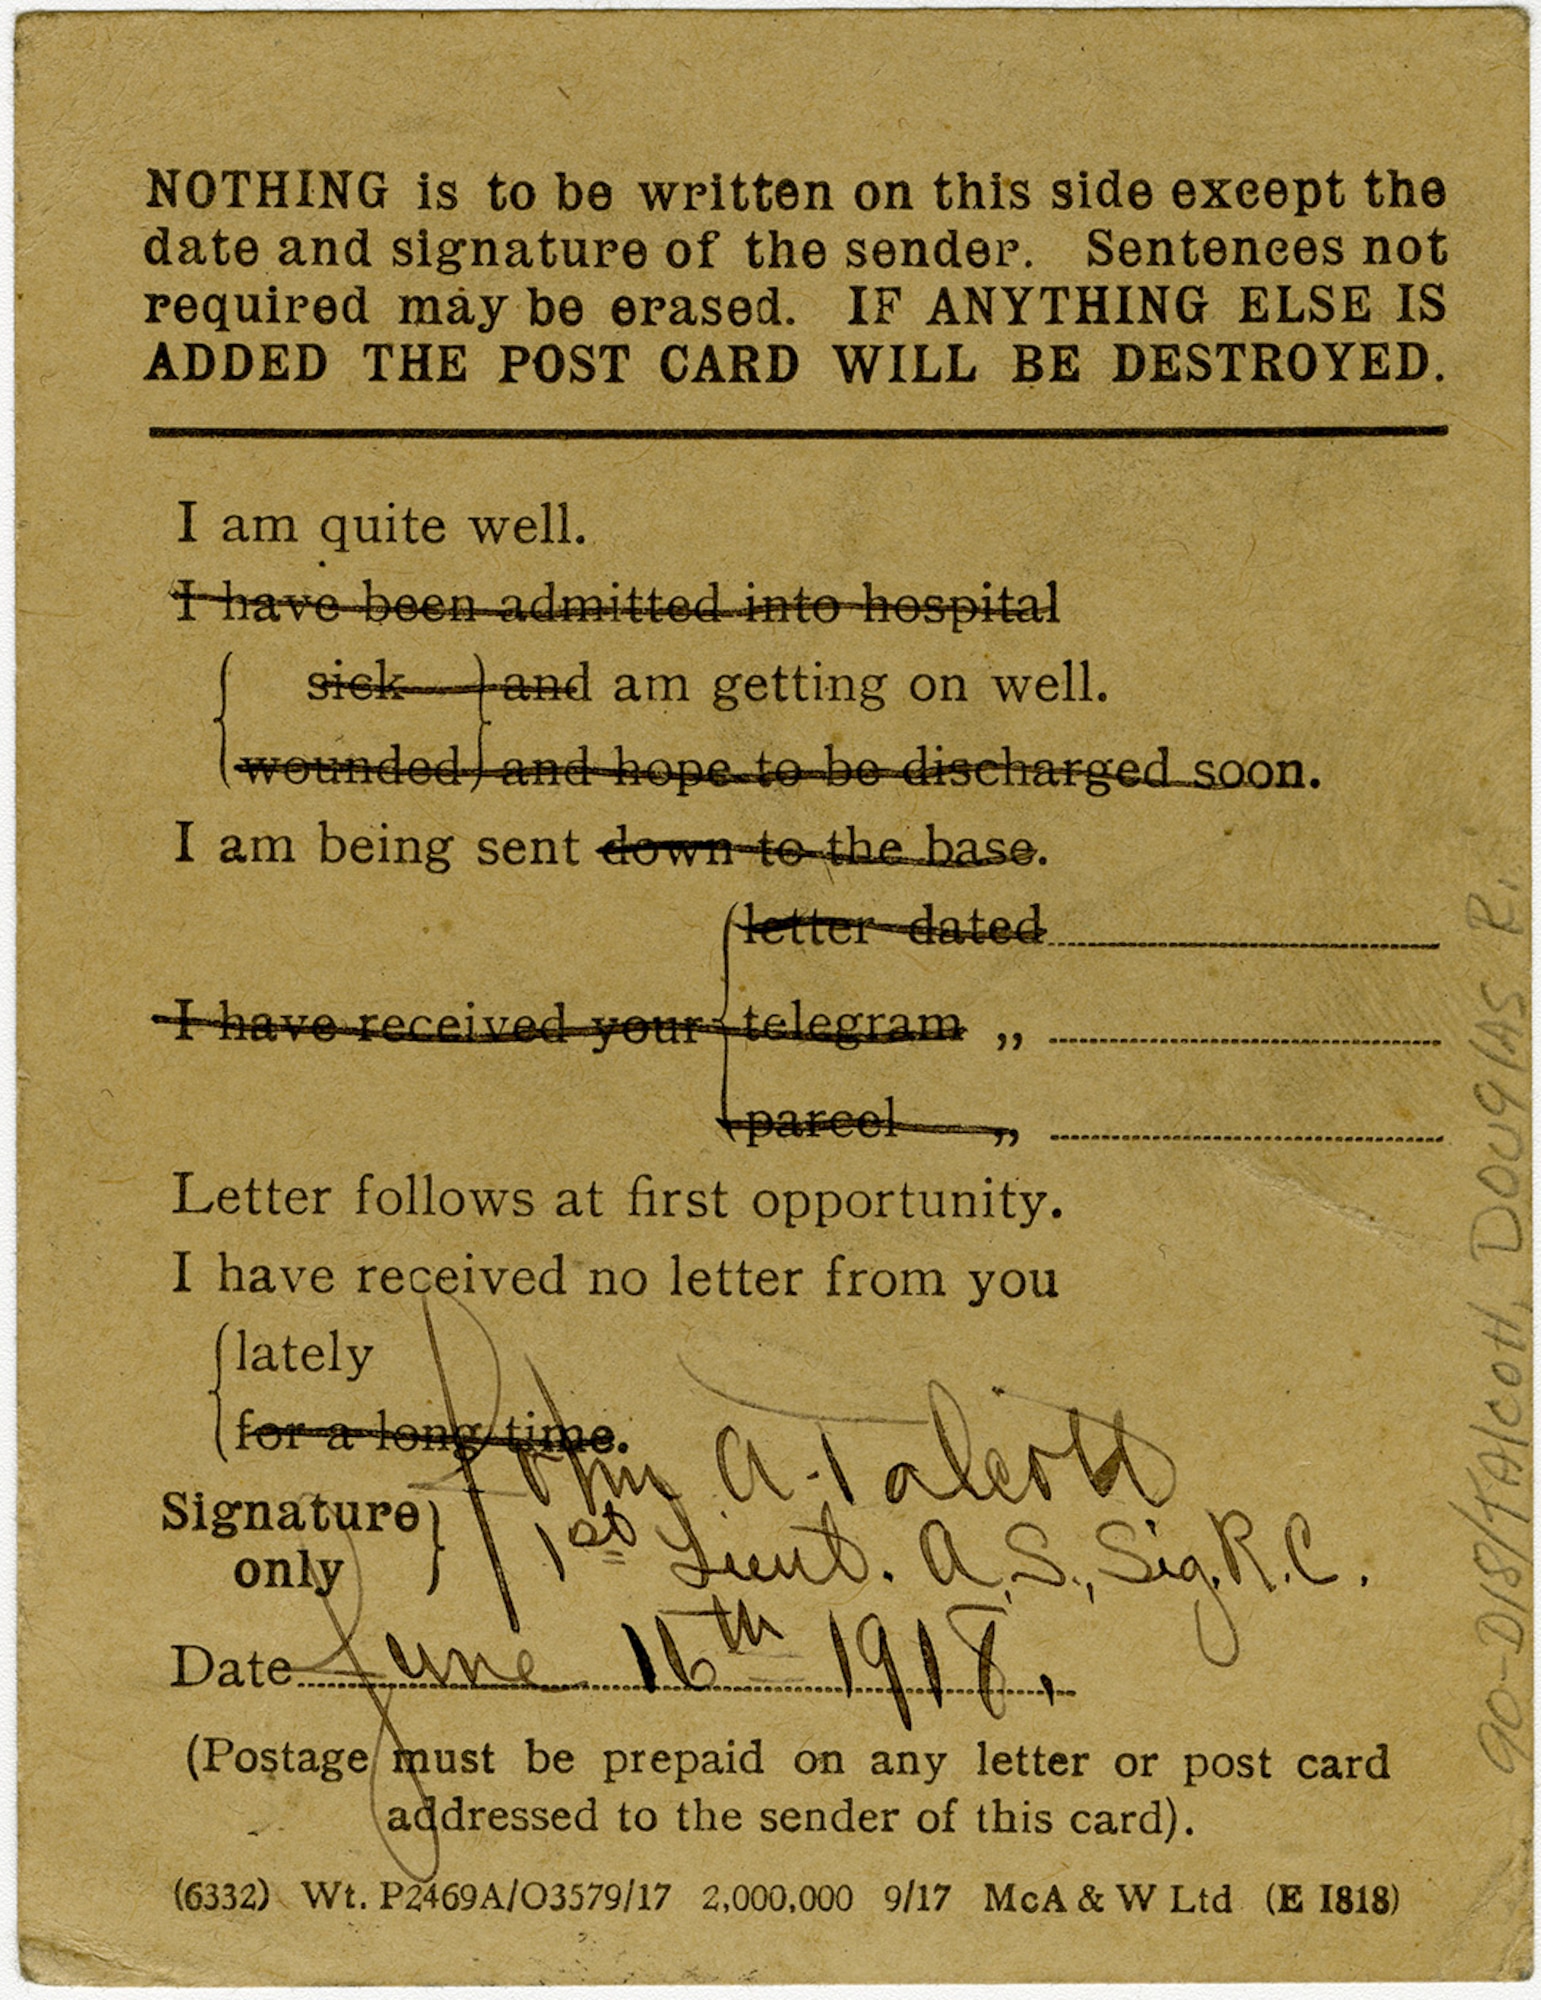 NOTHING is to be written on this side except the
date and signature of the sender. Sentences not
required may be erased. IF ANYTHING ELSE IS
ADDED THE POST CARD WILL BE DESTROYED.
I am quite well.
I have been admitted into hospital
{ sick } and am getting on well.
{ wounded } and hope to be discharged soon.
I am being sent down to the base.
{ letter dated
I have received your { telegram „
{ parcel „
Letter follows at first opportunity.
I have received no letter from you
{ lately
{ for a long time.
Signature } John A. Talcott
only } 1st Lieut. A.S., Sig. R.C.
Date June 16th 1918.
(Postage must be prepaid on any letter or post card
addressed to the sender of this card).
(6332) Wt. P2469A/O3579/17 2,000,000 9/17 McA & W Ltd (E 1818)
90-D18/TAlCOtt, DOUglAS R.